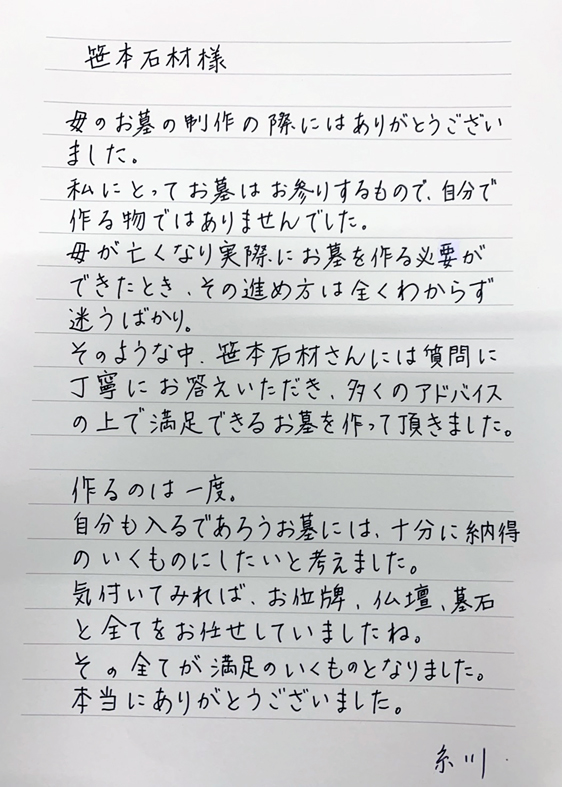 笹本石材様
母のお墓の制作の際にはありがとうござい
ました。
私にとってお墓はお参りするもので、自分で
作る物ではありませんでした。
母が亡くなり実際にお墓を作る必要が
できたとき、その進め方は全くわからず
迷うばかり。
そのような中、笹本石材さんには質問に
丁寧にお答えいただき、多くのアドバイス
の上で満足できるお墓を作って頂きました。
作るのは一度。
自分も入るであろうお墓には、十分に納得
のいくものにしたいと考えました。
気付いてみれば、お位牌、仏壇、墓石
と全てをお任せしていましたね。
その全てが満足のいくものとなりました。
本当にありがとうございました。
糸川